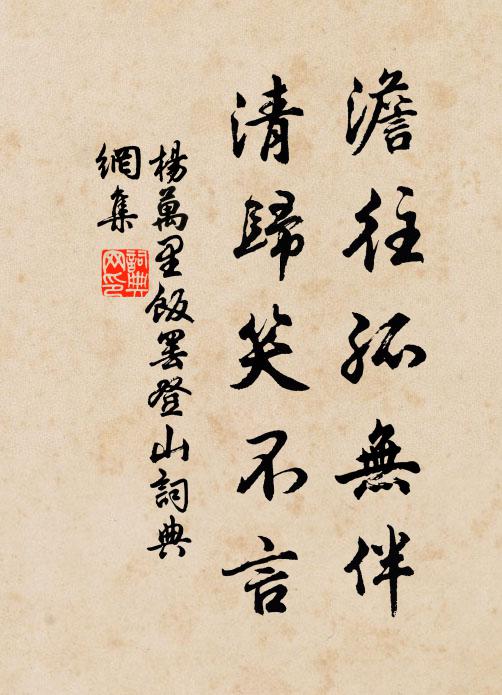 澹往孤無伴
清歸笑不言
楊萬里飯罷登山詞典
網集
詞典
网印